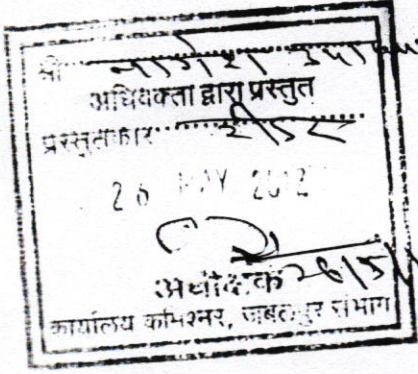 श्री नागेश
अधिवक्ता द्वारा प्रस्तुत
प्रस्तुतकार
26 MAY 2012
अधीक्षक 26/5/
कार्यालय कमिश्नर, जबलपुर संभाग